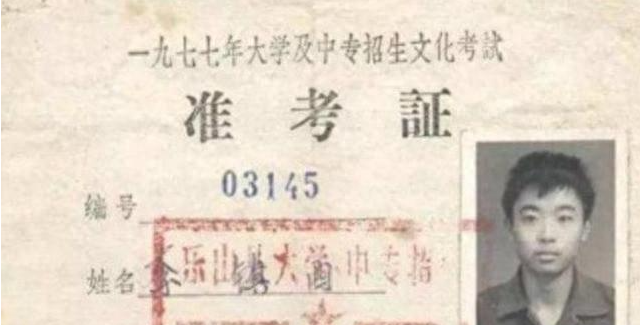 一九七七年大学及中专招生文化考試
准考証
编号 03145
乐山 大学 中专招
姓名